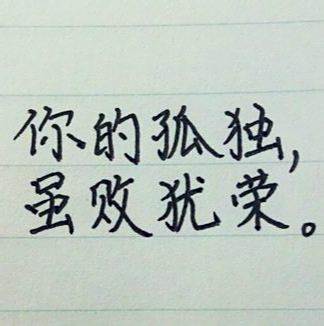 你的孤独,
虽败犹荣。